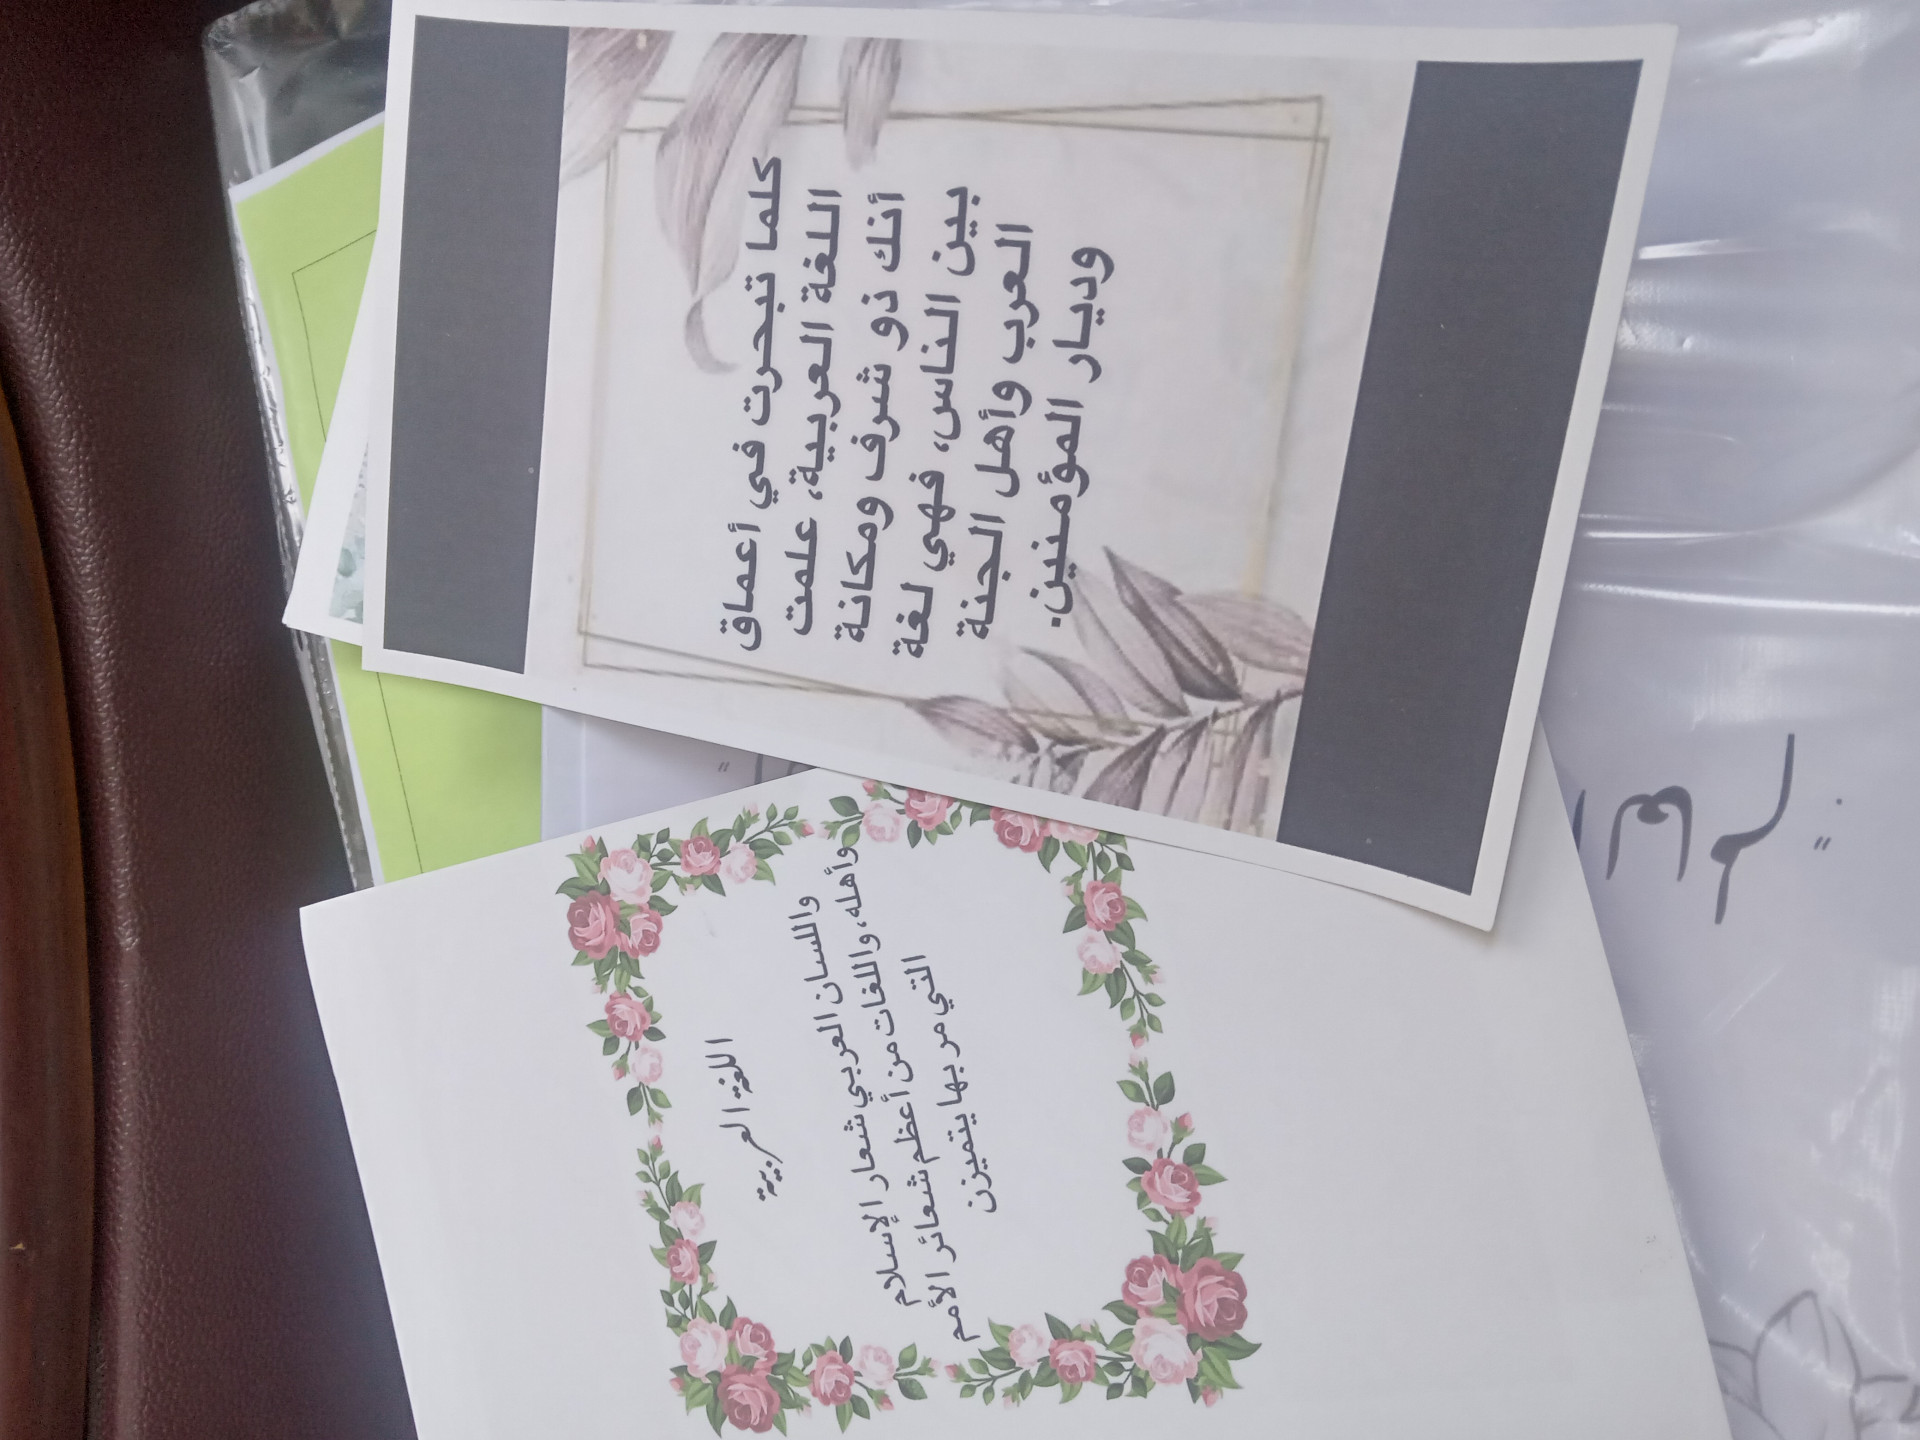 كلما تبحرت في أعماق
اللغة العربية، علمت
أنك ذو شرف ومكانة
بين الناس، فهي لغة
العرب وأهل الجنة
وديار المؤمنين.
اللغة العربية
واللسان العربي شعار الإسلام
وأهله، واللغات من أعظم شعائر الأمم
التي مر بها يتميزن